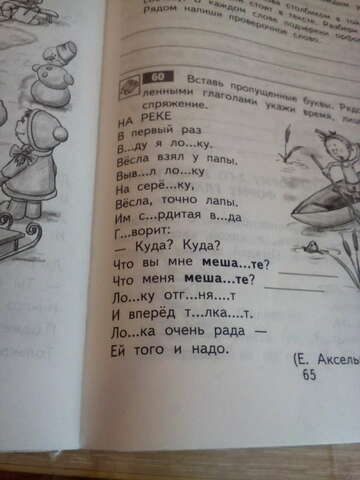 словом столбиком в тон
стоит в тексте. Разбери
О каждом слове подчеркни
Рядом напиши проверочное слово.
60 Вставь пропущенные буквы. Ряд
ленными глаголами укажи время, ли
спряжение.
НА РЕКЕ
В первый раз
В...ду я ло...ку.
Вёсла взял у папы.
Выв...л ло...ку
На серё...ку,
Вёсла, точно лапы.
Им с...рдитая в...да
Г...ворит:
— Куда? Куда?
Что вы мне меша...те?
Что меня меша...те?
Ло...ку отг...ня...т
И вперёд т...лка...т.
Ло...ка очень рада —
Ей того и надо.
(Е. Аксель
65